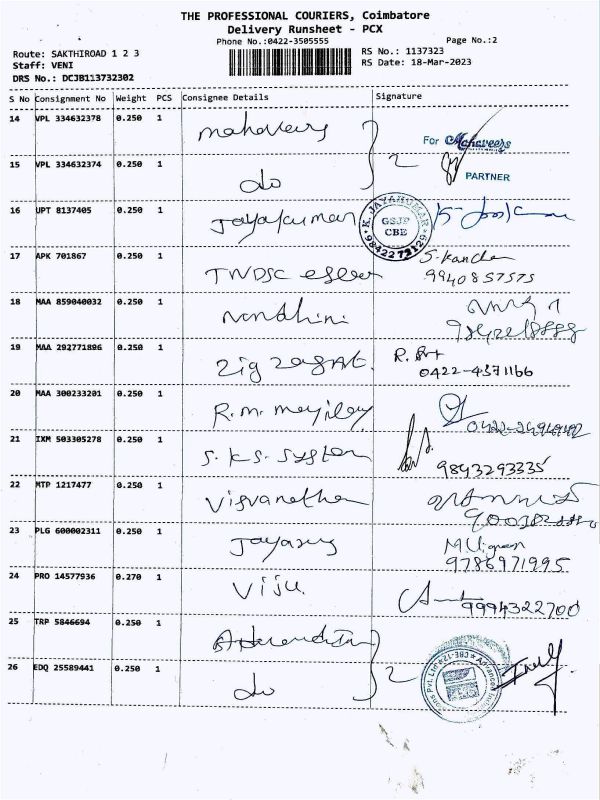 THE PROFESSIONAL COURIERS, Coimbatore
Delivery Runsheet - PCX
Phone No.:0422-3505555 Page No.:2
Route: SAKTHIROAD 1 2 3 RS No.: 1137323
Staff: VENI RS Date: 18-Mar-2023
DRS No.: DCJB113732302
S No Consignment No Weight PCS Consignee Details Signature
14 VPL 334632378 0.250 1 mahaveers For Mahaveers
15 VPL 334632374 0.250 1 do 2 PARTNER
16 UPT 8137405 0.250 1 Jayakumar K. JAYAKUMAR GSJP CBE
17 APK 701867 0.250 1 TWDSC S. Kanchan
9940857575
18 MAA 859040032 0.250 1 Nandhini
19 MAA 292771886 0.250 1 zig zag R.
0422-4371166
20 MAA 300233201 0.250 1 R.M.
21 IXM 503305278 0.250 1 S.K.S. System
9843293335
22 MTP 1217477 0.250 1 Visvanathan
23 PLG 600002311 0.250 1
9786971995
24 PRO 14577936 0.270 1 Viju.
9994322700
25 TRP 5846694 0.250 1
26 EDQ 25589441 0.250 1 do 2